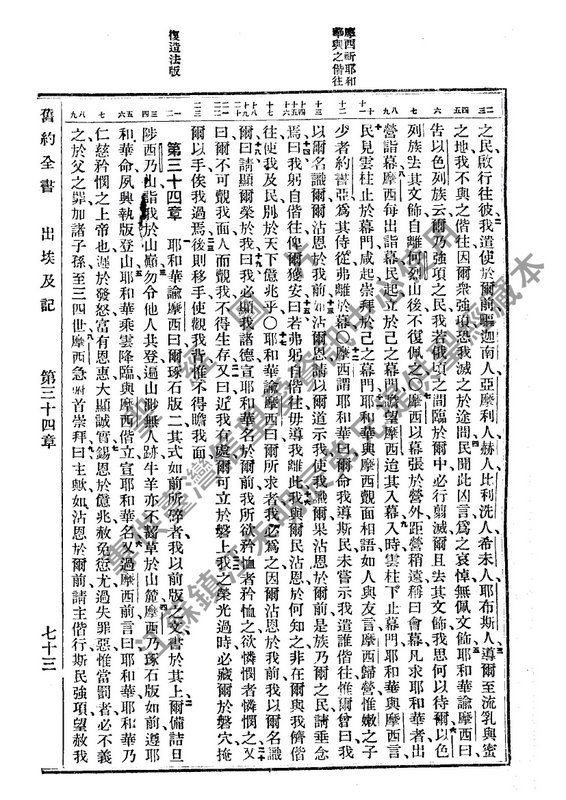 摩西祈耶和
華與之偕往
復造法版
之民啟行往彼我遣使於爾前驅迦南人亞摩利人赫人比利洗人希未人耶布斯人導爾至流乳與蜜
之地我不與之偕往因爾眾強項恐我滅之於途間民聞此凶言爲之哀悼無佩文飾耶和華諭摩西曰
告以色列族云爾乃強項之民我若俄頃之間臨於爾中必行翦滅爾且去其文飾我思何以待爾以色
列族去其文飾自離何烈山後不復佩之〇摩西以幕張於營外距營稍遠稱曰會幕凡求耶和華者出
營詣幕摩西每出詣幕民起立於己之幕門瞻望摩西迨其入幕入時雲柱下止幕門耶和華與摩西言
民見雲柱止於幕門咸起崇拜於己之幕門耶和華與摩西覿面相語如人與友言摩西歸營惟嫩之子
少者約書亞爲其侍從弗離於幕〇摩西謂耶和華曰爾命我導斯民未嘗示我遣誰偕往惟爾曾曰我
以爾名識爾爾沾恩於我前如沾爾恩請以爾道示我使我識爾果沾恩於爾前是族乃爾之民請垂念
焉曰我躬自偕往俾爾獲安曰若弗躬自偕往毋導我離此我與爾民沾恩於何知之非在爾與我儕偕
往使我及民別於天下億兆乎〇耶和華諭摩西曰爾所求者我必爲之因爾沾恩於我前我以爾名識
爾曰請顯爾榮於我曰我必顯我諸德宣耶和華名於爾前我所欲矜恤者矜恤之欲憐憫者憐憫之又
曰爾不可覿我面人而覿我不得生存又曰近我有處爾可立於磐上我之榮光過時必藏爾於磐穴掩
爾以手俟我過焉後則移手使觀我背惟不得瞻我面
第三十四章
耶和華諭摩西曰爾琢石版二其式如前所碎者我以前版之文書於其上爾備詰旦
陟西乃山詣我於山巔勿令他人其登遍山勿無人跡牛羊亦不可齕草於山麓摩西乃琢石版如前遵耶
和華命夙興執版登山耶和華乘雲降臨與摩西偕立宣耶和華名又過摩西前言曰耶和華耶和華乃
仁慈矜憫之上帝也遲於發怒富有恩惠大顯誠實錫恩於億兆赦免愆尤過失罪惡惟當罰者必不義
之於父之罪加諸子孫至三四世摩西急俯首崇拜曰主歟如沾恩於爾前請主偕行斯民強項望赦我
舊約全書
出埃及記
第三十四章
七十三